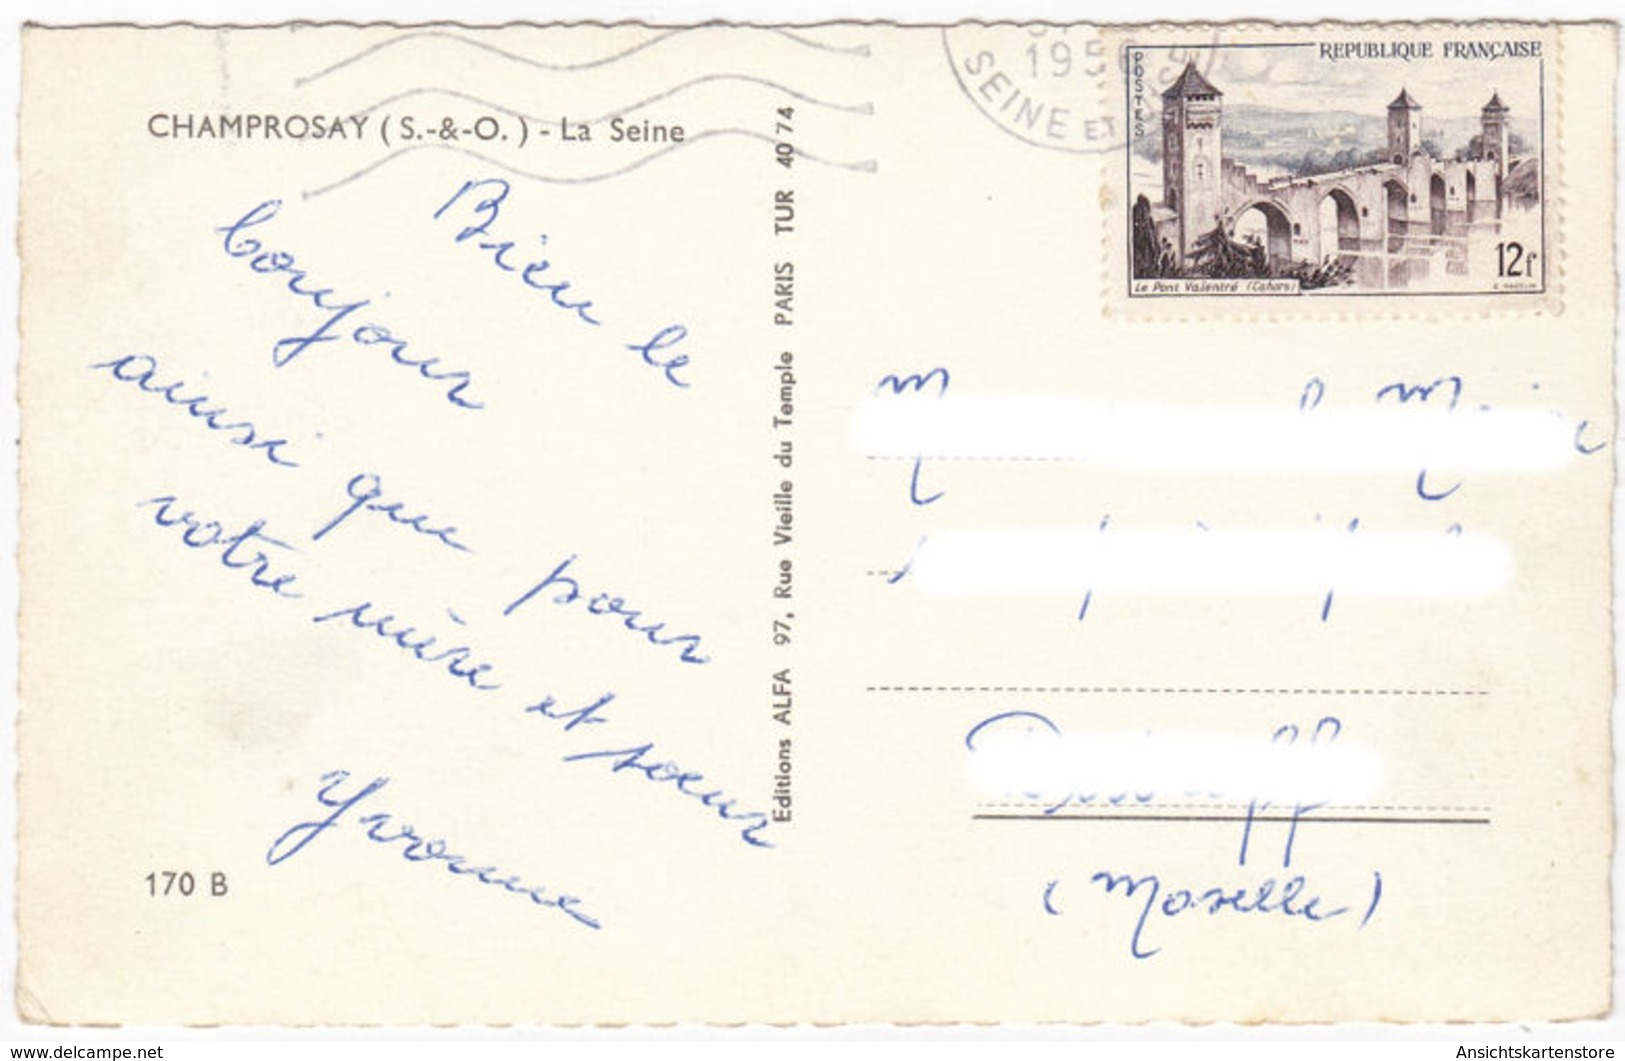 CHAMPROSAY ( S.-&-O. ) - La Seine
Bien le
bonjour
ainsi que pour
votre mère et soeur
Yvonne
170 B
Editions ALFA 97, Rue Vieille du Temple PARIS TUR 40 74
1956
SEINE ET
REPUBLIQUE FRANÇAISE
POSTES
12f
Le Pont Valentré (Cahors)
(Moselle)
www.delcampe.net
Ansichtskartenstore